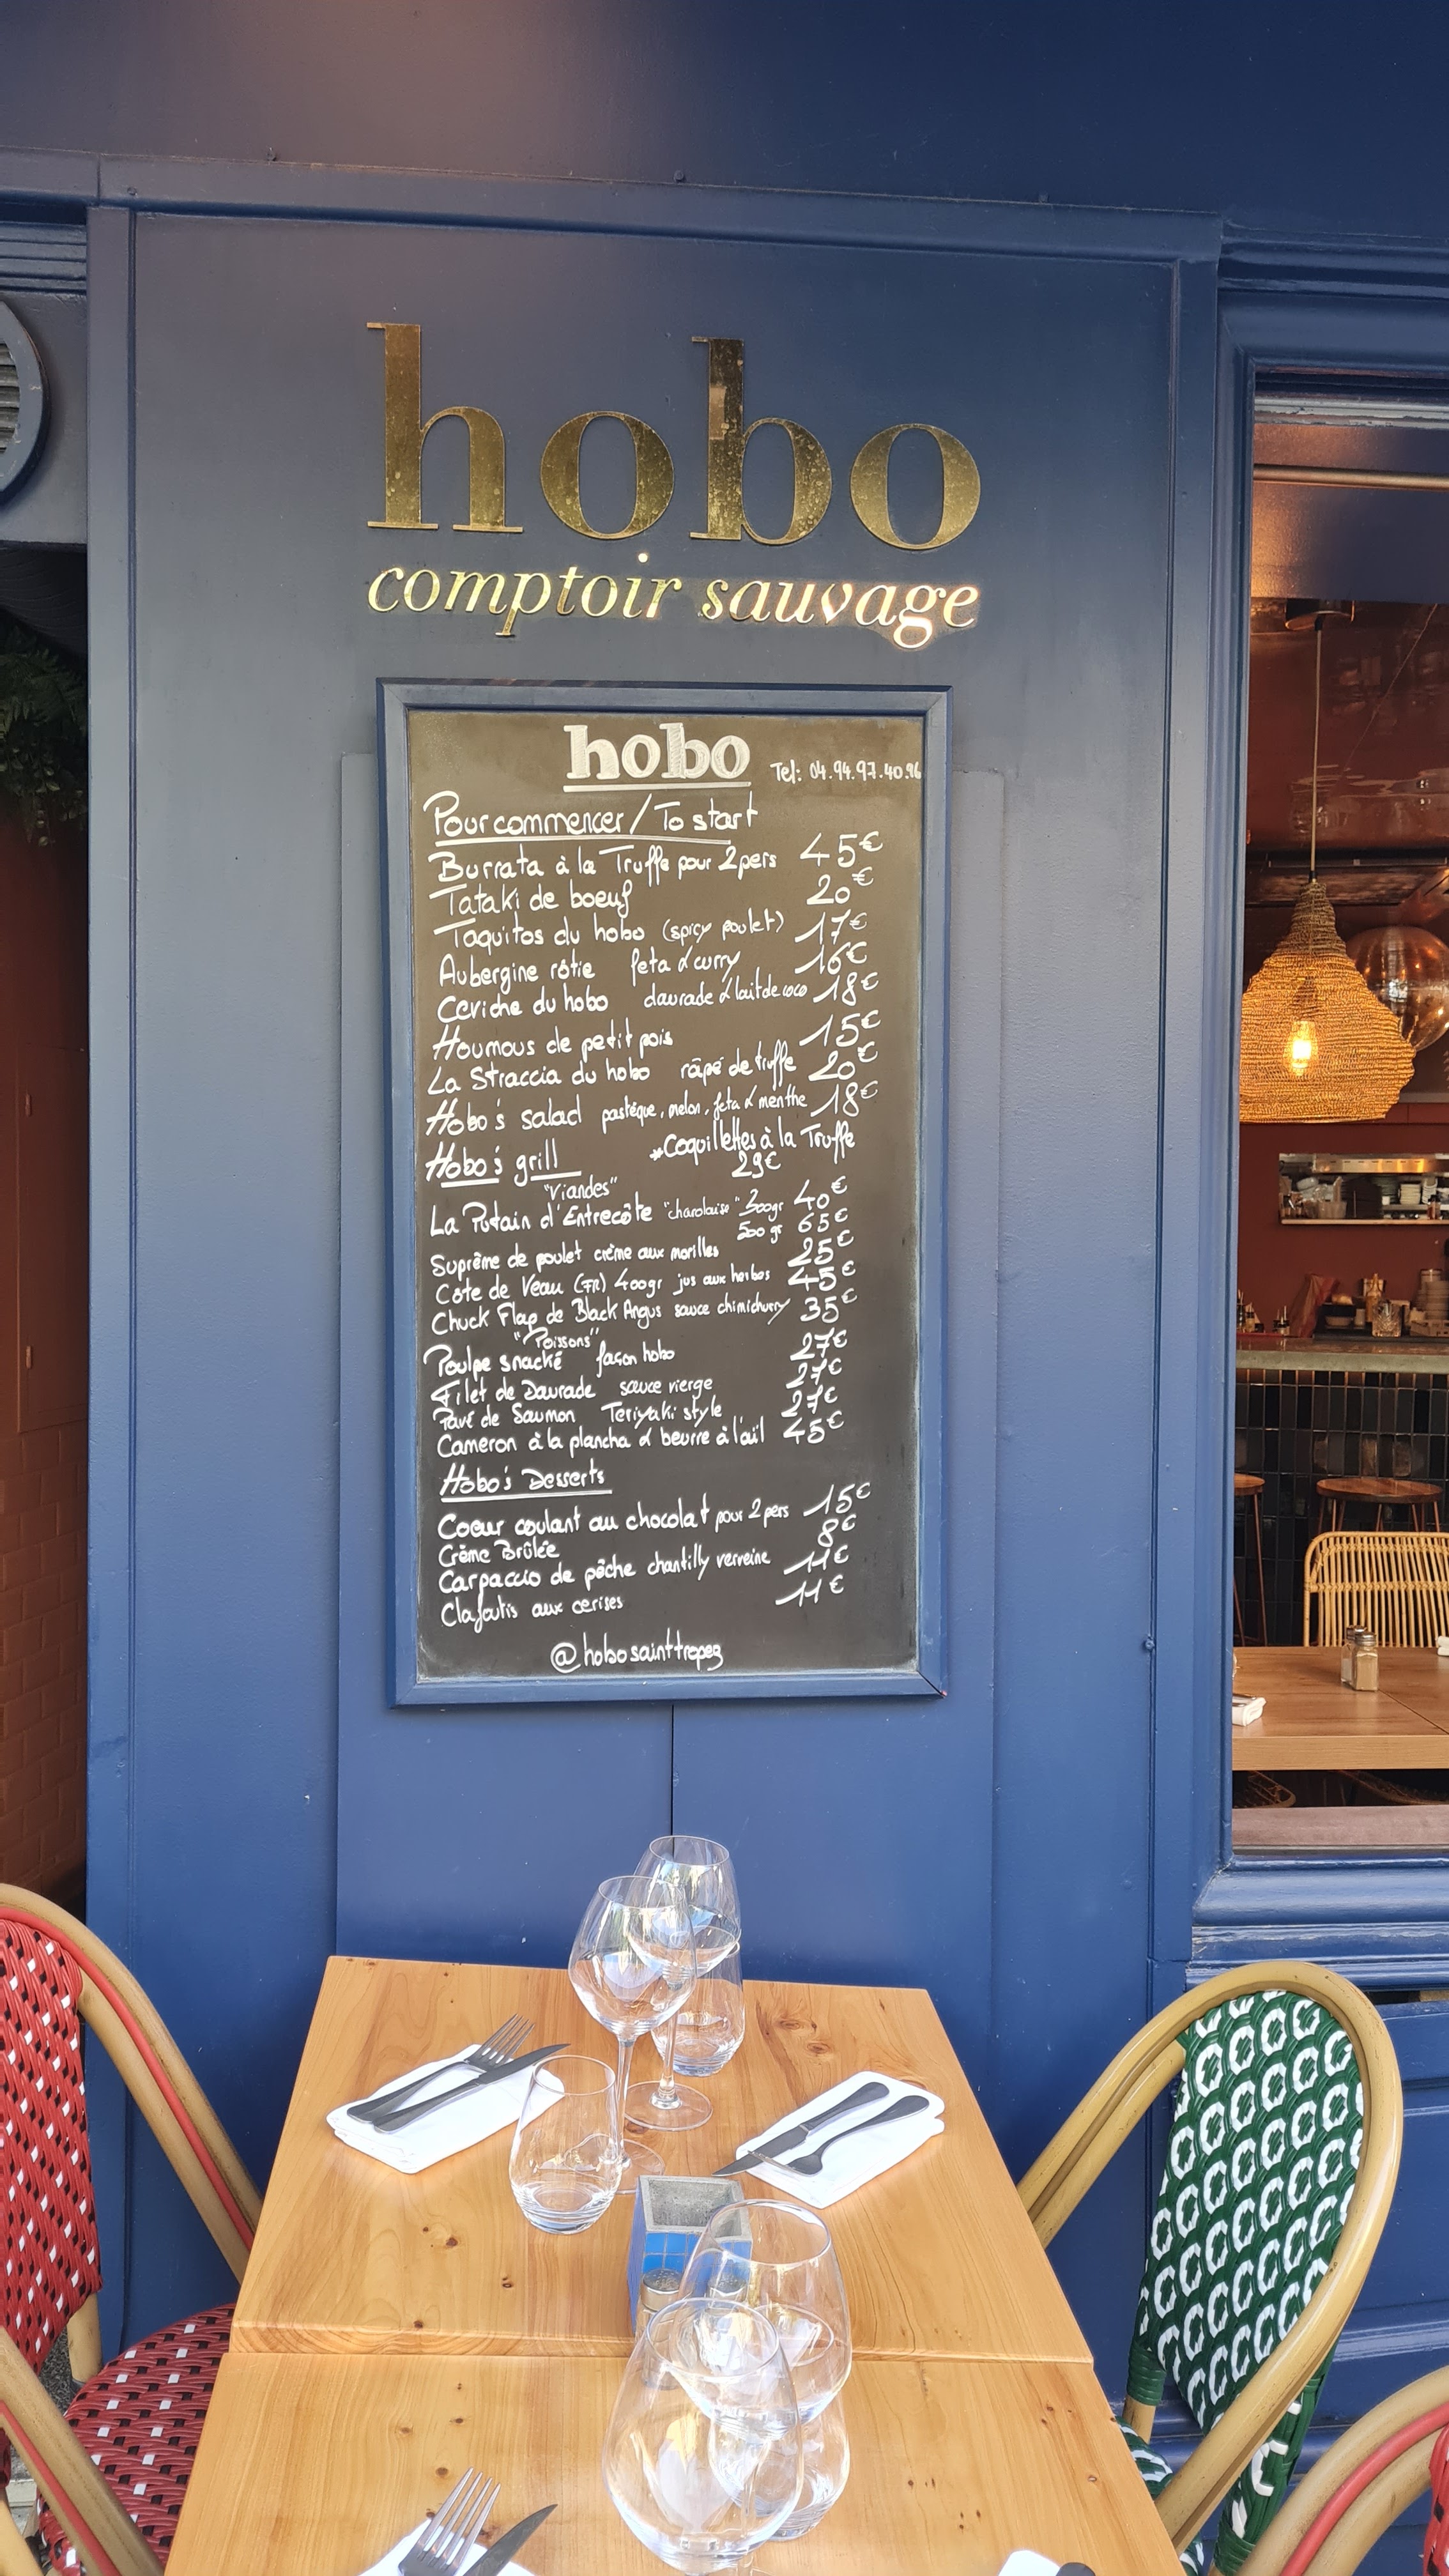 hobo
comptoir sauvage
hobo
Tel: 04.94.97.40.96
Pour commencer / To start
Burrata à la Truffe pour 2 pers 45€
Tataki de boeuf 20€
Taquitos du hobo (spicy poulet) 17€
Aubergine rôtie feta & curry 16€
Ceviche du hobo daurade & lait de coco 18€
Houmous de petit pois 15€
La Straccia du hobo râpé de truffe 20€
Hobo's salad pastèque, melon, feta & menthe 18€
*Coquillettes à la Truffe
29€
Hobo's grill
"Viandes"
La Putain d'Entrecôte "charolaise" 300gr 40€
500 gr 65€
Suprême de poulet crème aux morilles 25€
Côte de Veau (FR) 400gr jus aux herbes 45€
Chuck Flap de Black Angus sauce chimichurry 35€
"Poissons"
Poulpe snacké façon hobo 27€
Filet de Daurade sauce vierge 27€
Pavé de Saumon Teriyaki style 27€
Cameron à la plancha & beurre à l'ail 45€
Hobo's Desserts
Coeur coulant au chocolat pour 2 pers 15€
Crème Brûlée 8€
Carpaccio de pêche chantilly verveine 11€
Clafoutis aux cerises 11€
@hobosainttropez